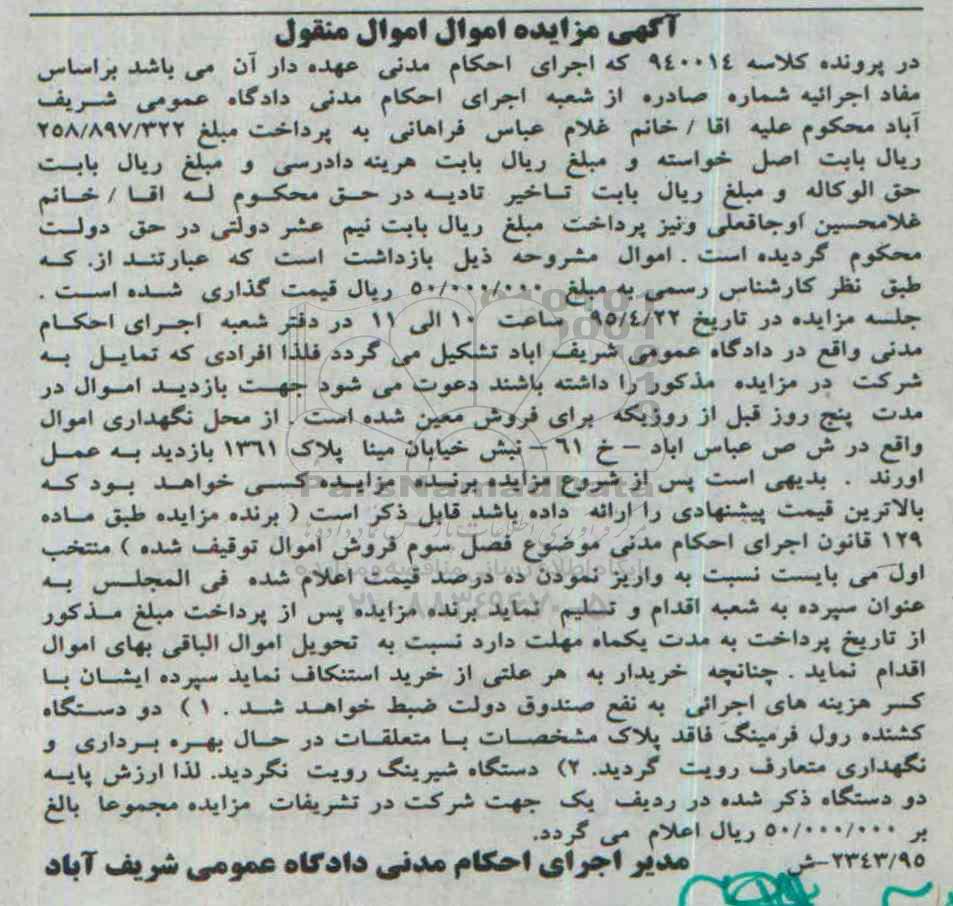 آگهی مزایده اموال اموال منقول
در پرونده کلاسه ۹٤۰۰۱٤ که اجرای احکام مدنی عهده دار آن می باشد براساس
مفاد اجرائیه شماره صادره از شعبه اجرای احکام مدنی دادگاه عمومی شریف
آباد محکوم علیه اقا / خانم غلام عباس فراهانی به پرداخت مبلغ ۲٥۸/۸۹۷/۳۲۲
ریال بابت اصل خواسته و مبلغ ریال بابت هزینه دادرسی و مبلغ ریال بابت
حق الوکاله و مبلغ ریال بابت تاخیر تادیه در حق محکوم له اقا / خانم
غلامحسین اوجاقعلی ونیز پرداخت مبلغ ریال بابت نیم عشر دولتی در حق دولت
محکوم گردیده است . اموال مشروحه ذیل بازداشت است که عبارتند از. که
طبق نظر کارشناس رسمی به مبلغ ٥۰/۰۰۰/۰۰۰ ریال قیمت گذاری شده است .
جلسه مزایده در تاریخ ۹٥/٤/۲۲ ساعت ۱۰ الی ۱۱ در دفتر شعبه اجرای احکام
مدنی واقع در دادگاه عمومی شریف اباد تشکیل می گردد فلذا افرادی که تمایل به
شرکت در مزایده مذکور را داشته باشند دعوت می شود جهت بازدید اموال در
مدت پنج روز قبل از روزیکه برای فروش معین شده است . از محل نگهداری اموال
واقع در ش ص عباس اباد – خ ٦۱ – نبش خیابان مینا پلاک ۱۳٦۱ بازدید به عمل
اورند . بدیهی است پس از شروع مزایده برنده مزایده کسی خواهد بود که
بالاترین قیمت پیشنهادی را ارائه داده باشد قابل ذکر است ( برنده مزایده طبق ماده
۱۲۹ قانون اجرای احکام مدنی موضوع فصل سوم فروش اموال توقیف شده ) منتخب
اول می بایست نسبت به واریز نمودن ده درصد قیمت اعلام شده فی المجلس به
عنوان سپرده به شعبه اقدام و تسلیم نماید برنده مزایده پس از پرداخت مبلغ مذکور
از تاریخ پرداخت به مدت یکماه مهلت دارد نسبت به تحویل اموال الباقی بهای اموال
اقدام نماید . چنانچه خریدار به هر علتی از خرید استنکاف نماید سپرده ایشان با
کسر هزینه های اجرائی به نفع صندوق دولت ضبط خواهد شد . ۱ ) دو دستگاه
کشنده رول فرمینگ فاقد پلاک مشخصات با متعلقات در حال بهره برداری و
نگهداری متعارف رویت گردید. ۲) دستگاه شیرینگ رویت نگردید. لذا ارزش پایه
دو دستگاه ذکر شده در ردیف یک جهت شرکت در تشریفات مزایده مجموعا بالغ
بر ٥۰/۰۰۰/۰۰۰ ریال اعلام می گردد.
۲۳٤۳/۹٥-ش مدیر اجرای احکام مدنی دادگاه عمومی شریف آباد